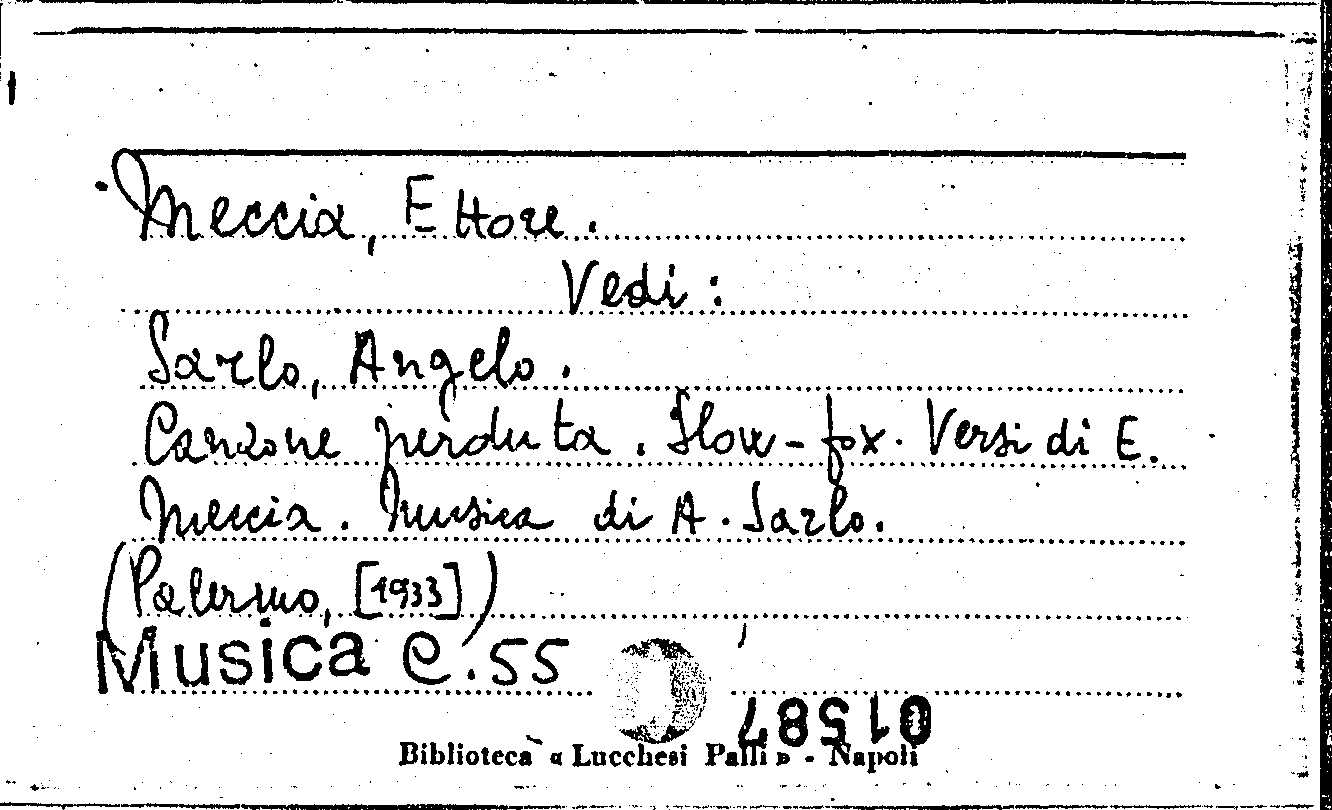 Meccia, Ettore.
Vedi:
Sarlo, Angelo.
Canzone perduta. Slow-fox. Versi di E.
Meccia. Musica di A. Sarlo.
(Palermo, [1933])
Musica C.55
01587
Biblioteca « Lucchesi Palli » - Napoli